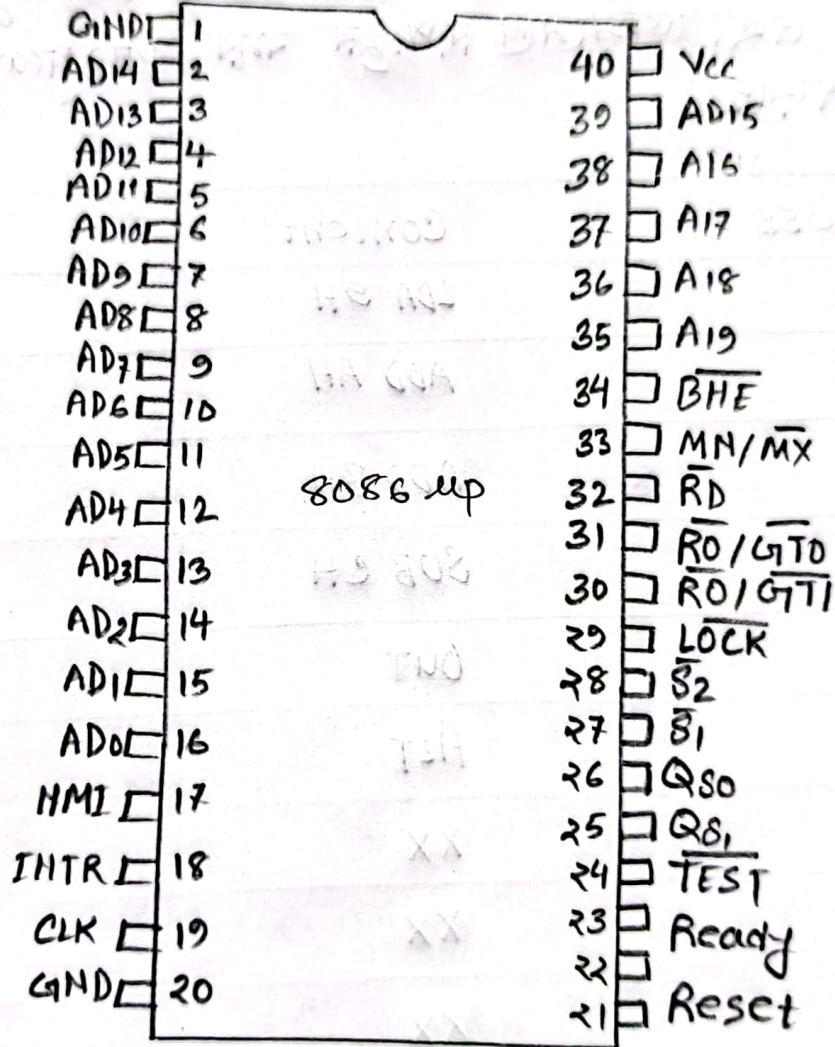 GND 1
AD14 2
AD13 3
AD12 4
AD11 5
AD10 6
AD9 7
AD8 8
AD7 9
AD6 10
AD5 11
AD4 12
AD3 13
AD2 14
AD1 15
AD0 16
NMI 17
INTR 18
CLK 19
GND 20
8086 μp
40 Vcc
39 AD15
38 A16
37 A17
36 A18
35 A19
34 B̅H̅E̅
33 MN/M̅X̅
32 R̅D̅
31 R̅O̅/G̅T̅0̅
30 R̅O̅/G̅T̅1̅
29 L̅O̅C̅K̅
28 S̅2
27 S̅1
26 QS0
25 QS1
24 T̅E̅S̅T̅
23 Ready
22
21 Reset